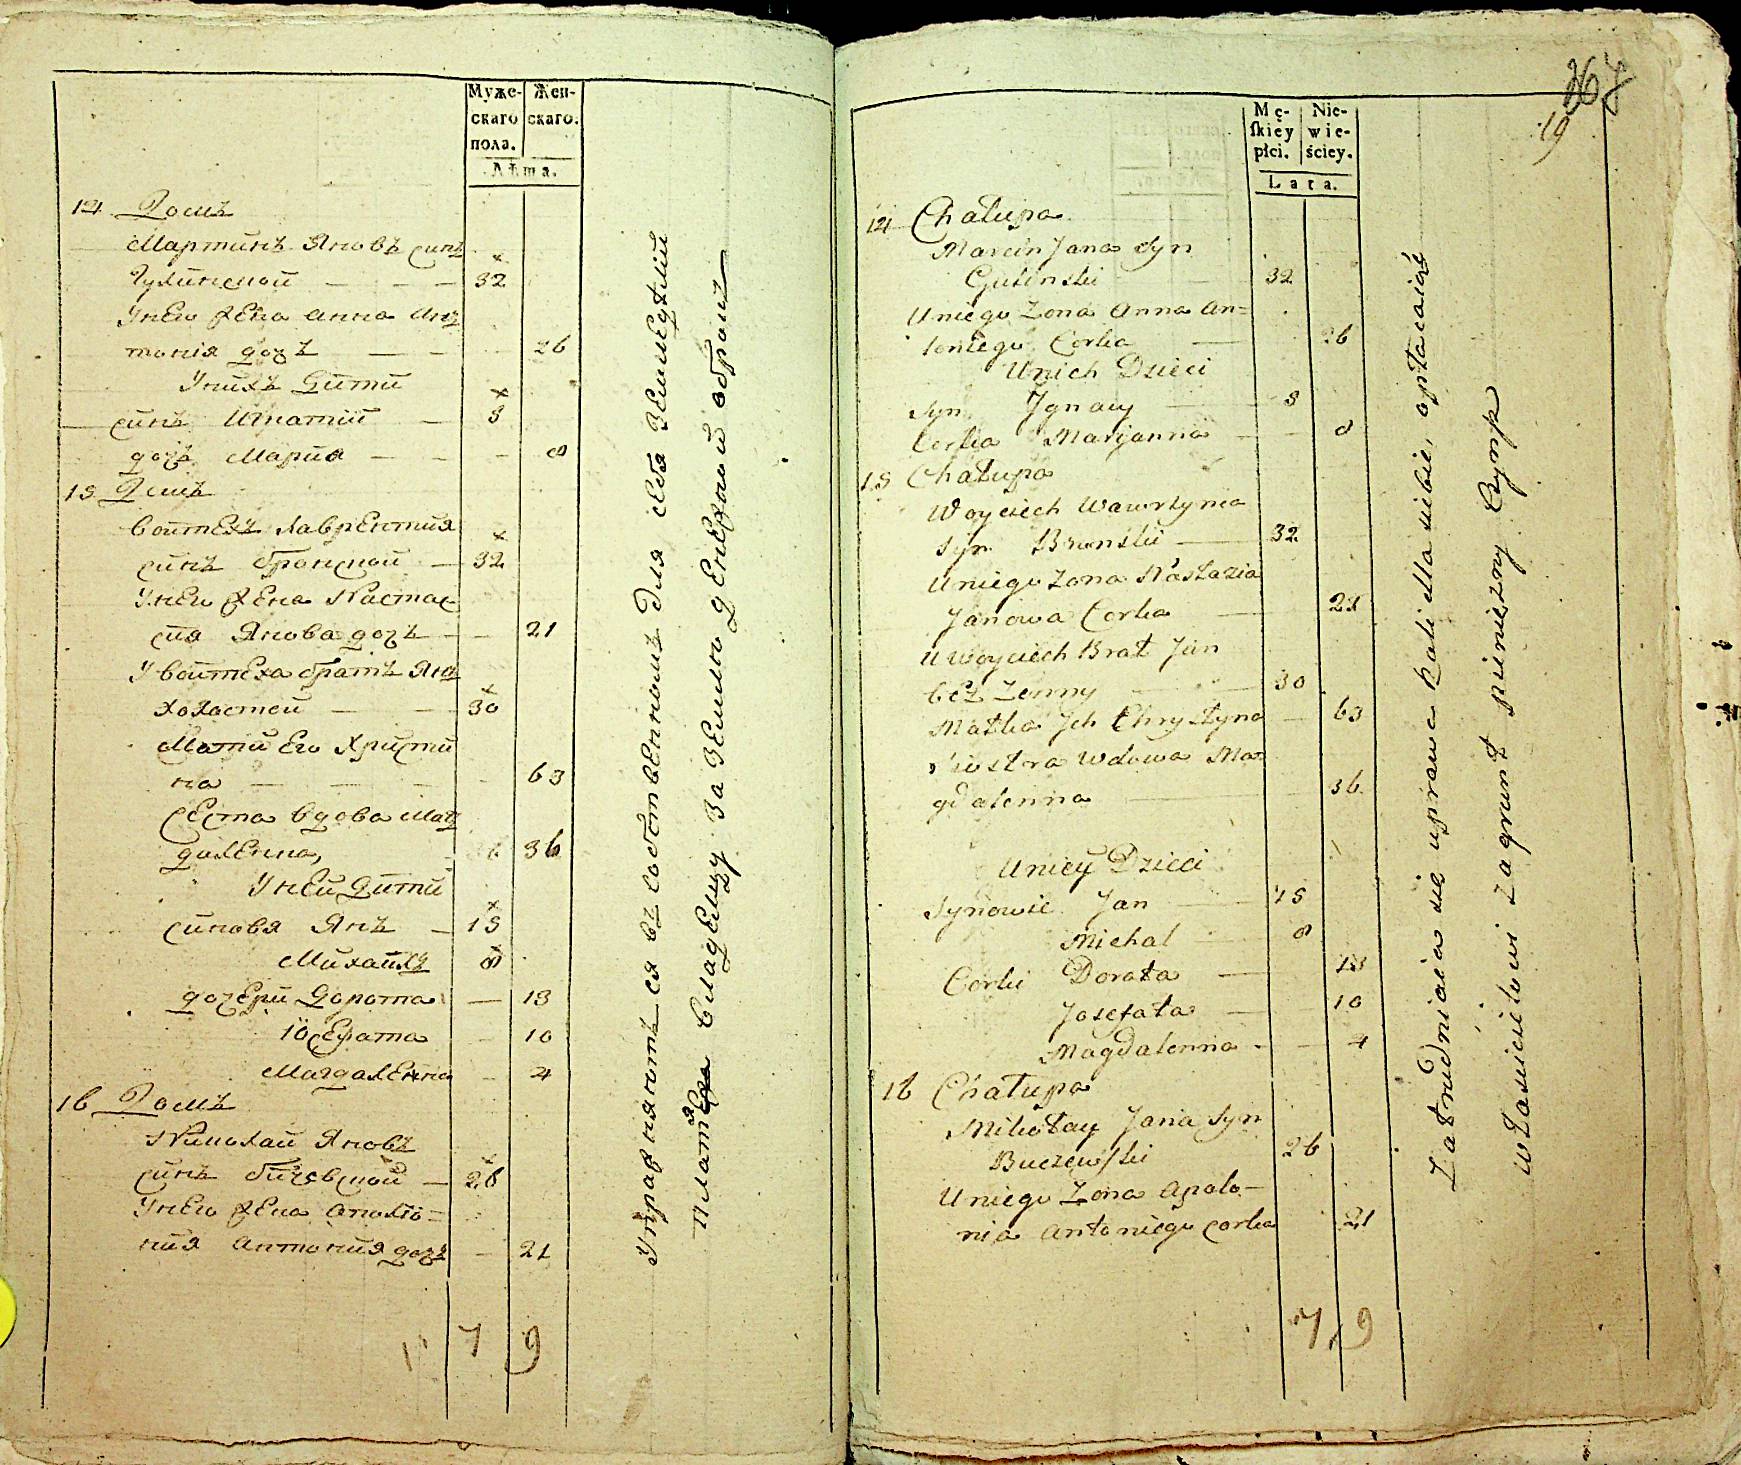 Муже-
скаго
пола.
Жен-
скаго.
Лѣта.
14 Домъ
Мартинъ Яновъ синъ
Гулинской — — — 32
Унего жена Анна Ан
тонія дочъ — — 26
Унихъ Дити
синъ Игнатий — 3
дочъ Мария — — — 8
15 Домъ
Войтехъ Лаврентия
синъ Бронской — 32
Унего жена Настас
ия Янова дочъ — — 21
У Войтеха братъ Янъ
холостей — — 30
Мати Его Христи
на — — — — 63
сестра вдова Маг
далена, 36
Уней Дити
синовя Янъ — 15
Михайлъ 8
дочери Дорота — 13
Іосефата — 10
Магдаленна — 4
16 Домъ
Николай Яновъ
синъ Бучевской — 26
Унего жена Аполіо=
ния Антония дочъ — 21
7 9
Упражняютъся въ собственномъ для себя земледелии
владелцу за землю денежный оброкъ
367
19
Mę-
skiey
płci.
Nie-
wie-
ściey.
Lata.
14 Chałupa
Marcin Jana Syn
Gulinski 32
Uniego Zona Anna An=
toniego Corka — 26
Unich Dzieci
Syn Jgnacy — 3
Corka Maryanna — — 8
15 Chałupa
Woyciech Wawrzynia
Syn Bronski — 32
Uniego Zona Nastazia
Janowa Corka — 21
U Woyciech Brat Jan
bez Zonny — — 30
Matka Jch Chrystyna — 63
Siostra Wdowa Ma
gdalenna — 36
Uniey Dzieci
Synowie Jan — 15
Michal — 8
Corki Dorata — 13
Josefata — 10
Magdalenna - — 4
16 Chałupa
Mikołay Jana Syn
Buczewski 26
Uniego Zona Apolo—
nia Antoniego corka 21
7 9
Zatrudniaia się uprawą Roli dla siebie, opłacaiąc
włascicielowi za grunt pieniężny Czynsz